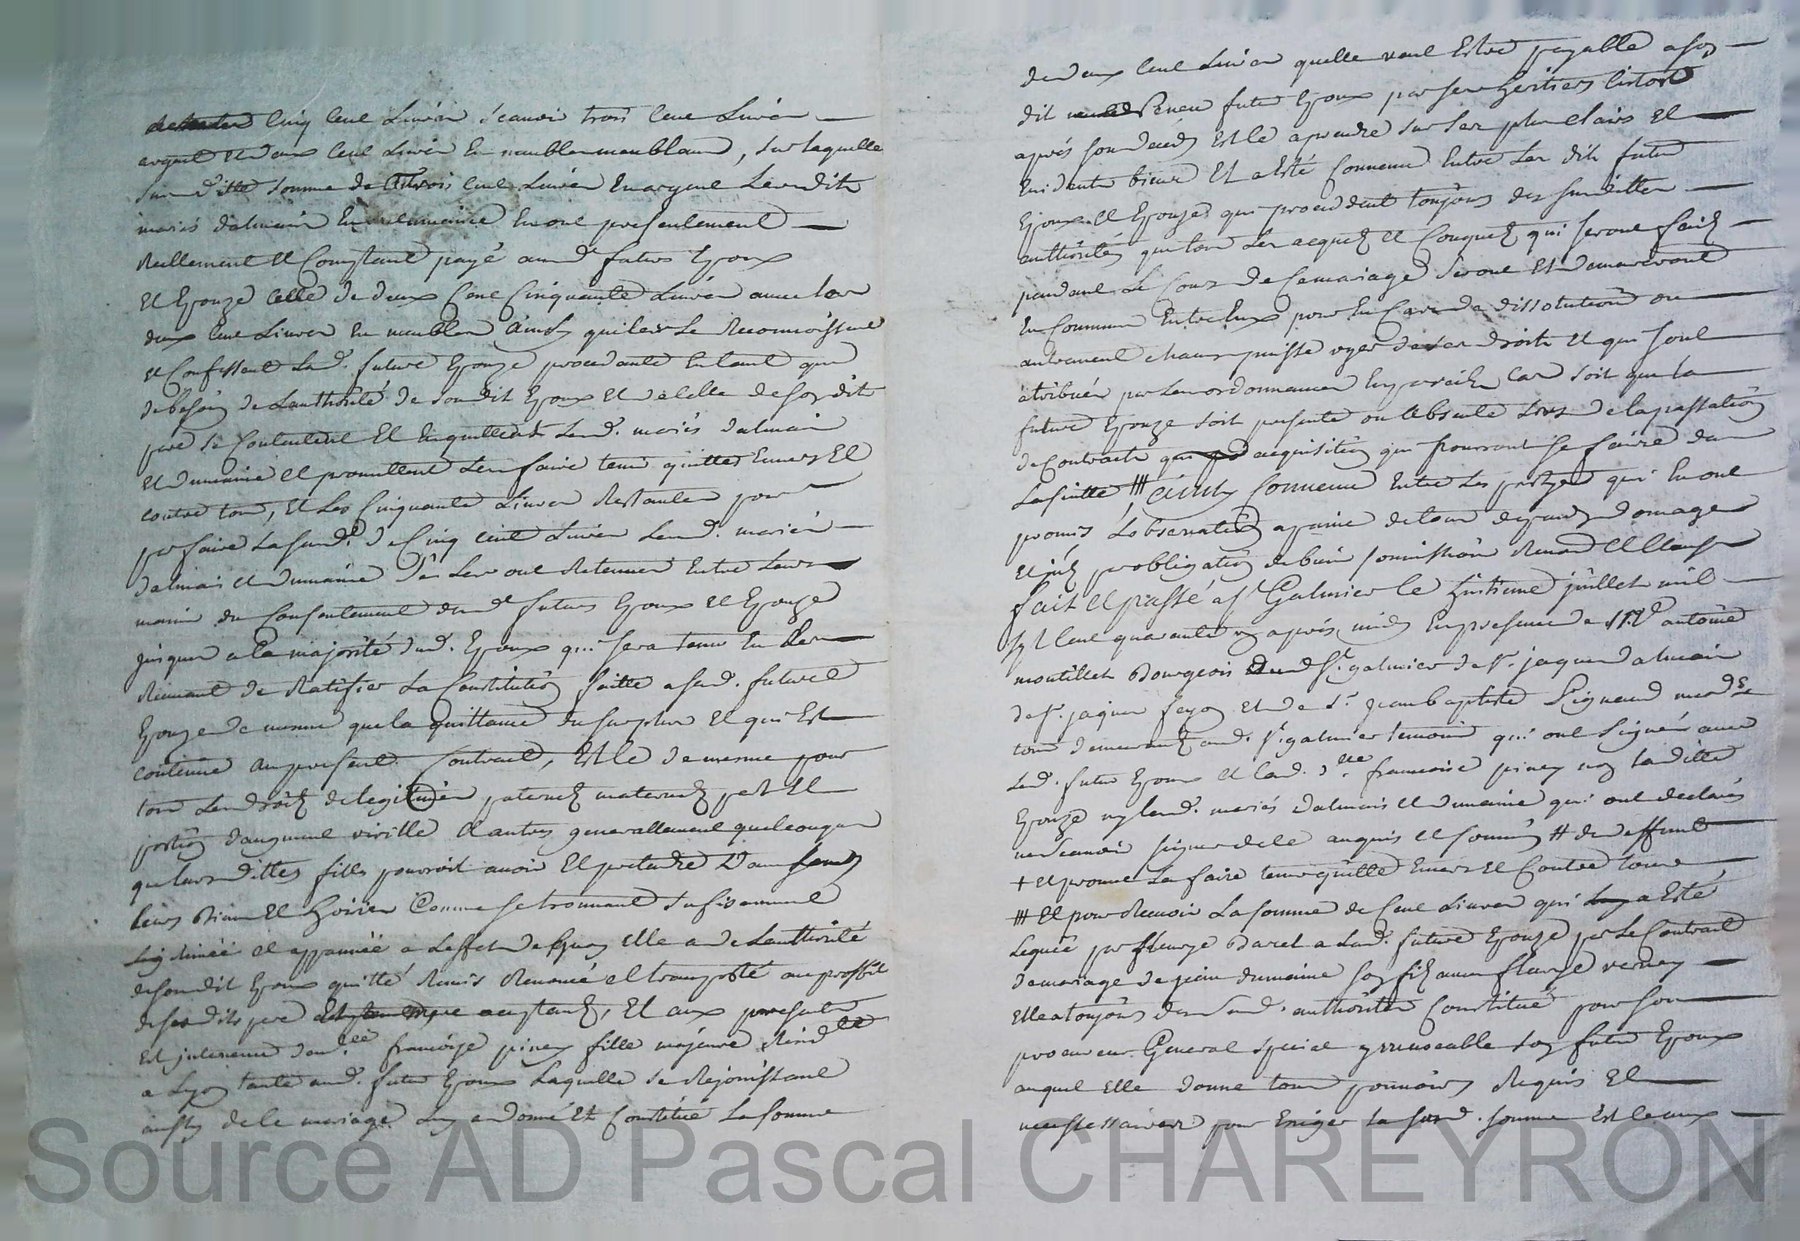 cinq cent Livres scavoir trois cent Livres
argent et deux cent Livres en meubles meublant, sur laquelle
susditte somme de trois cent Livres en argent Lesdits
mariés dalmais et dumaine en ont presentement
Reellement et Comptant payé aud. futurs Epoux
et Epouze celle de deux Cent Cinquante Livres avec les
deux cent Livres en meubles ainsy qu'ils le Reconnoissent
et Confessent Lad. future Epouze procedante en tant que
de besoin de Lauthorité de sondit Epoux et de celle de sondit
pere se Contentent et en quittent Lesd. mariés dalmais
et dumaine et promettent Les faire tenir quittes Envers et
contre tous, et Les Cinquante Livres Restantes pour
parfaire Lasusd. de Cinq cent Livres Lesd. mariés
dalmais et dumaine Les ont Retenues Entre Leurs
mains du Consentement desd. futurs Epoux et Epouze
jusques a la majorité dud. Epoux qui sera tenu En Les
Recevant de Ratifier La Constitution faitte a sad. future
Epouze de mesme que la quittance du surplus et qui Est
contenue au present Contract, Et ce de mesme pour
tous Les droits de legitimes paternels maternels part et
portion d'augment virille et autres generallement quelconques
que leurs dittes filles pouvoit avoir et pretendre dans
Leurs Biens et hoiries Comme se trouvant sufisament
Legitimée et appannée a Leffet de quoy Elle a de Lauthorité
desondit Epoux quitté Remis Renoncé et transporté au proffit
desesdits pere acceptants, Et aux presentes
Est intervenue dam.lle francoise piney fille majeure Resid.te
a Lyon tante aud. futur Epoux Laquelle se Rejouissant
ainsy de le mariage Luy a donné et Constitué La somme
de deux cent Livres quelle veut Estre payable a son
dit neveu futur Epoux par ses heritiers
après son deceds Et le a prendre sur Ses plus clairs et
Evidents biens Et a Esté Convenu Entre Les dits futurs
Epoux et Epouze qui procedent toujours des susdittes
authorités que tous Les acquets et Conquets qui seront faits
pendant Le Cours de Ce mariage seront Et demeureront
En Commun Entre Eux pour En Cas de dissolution ou
autrement chacun puisse uzer de ses droits et qui sont
atribués par Les ordonnances En pareil Cas soit que La
future Epouze soit presente ou absente Lors de la passation
de Contracts que acquisition qui pourront se faire dans
La suitte ### ainsy Convenu Entre Les partyes qui En ont
promis L'observation a paine de tous depends domages
et int. par obligation de biens soumissions Renon. et Clauses
fait et passé a St Galmier le huitieme juillet mil
sept Cent quarante apres midy En presence de sr. antoine
montillet Bourgeois dud. St. galmier de sr. jaques dalmais
de sr. jaques fayon et de sr. jean baptiste Rignaud march.
tous demeurants aud. St. galmier temoins qui ont Signés avec
Led. futur Epoux et Lad. d.lle francoise piney non Laditte
Epouze ny lesd. mariés dalmais et dumaine qui ont declarés
ne scavoir signer de ce anquis et sommés # de deffunt
+ et promet La faire tenir quitte Envers et Contre tous
### et pour Recevoir La somme de Cent Livres qui a Esté
Leguée par fleurye Baret a Lad. future Epouze par Le Contract
de mariage de jean dumaine son fils avec fleurye verney
Elle a toujours desd. authorités Constitué pour son
procureur General special yrrevocable son futur Epoux
auquel Elle donne tous pouvoirs Requis et
necessaires pour Exiger La susd. somme Et le aux
Source AD Pascal CHAREYRON